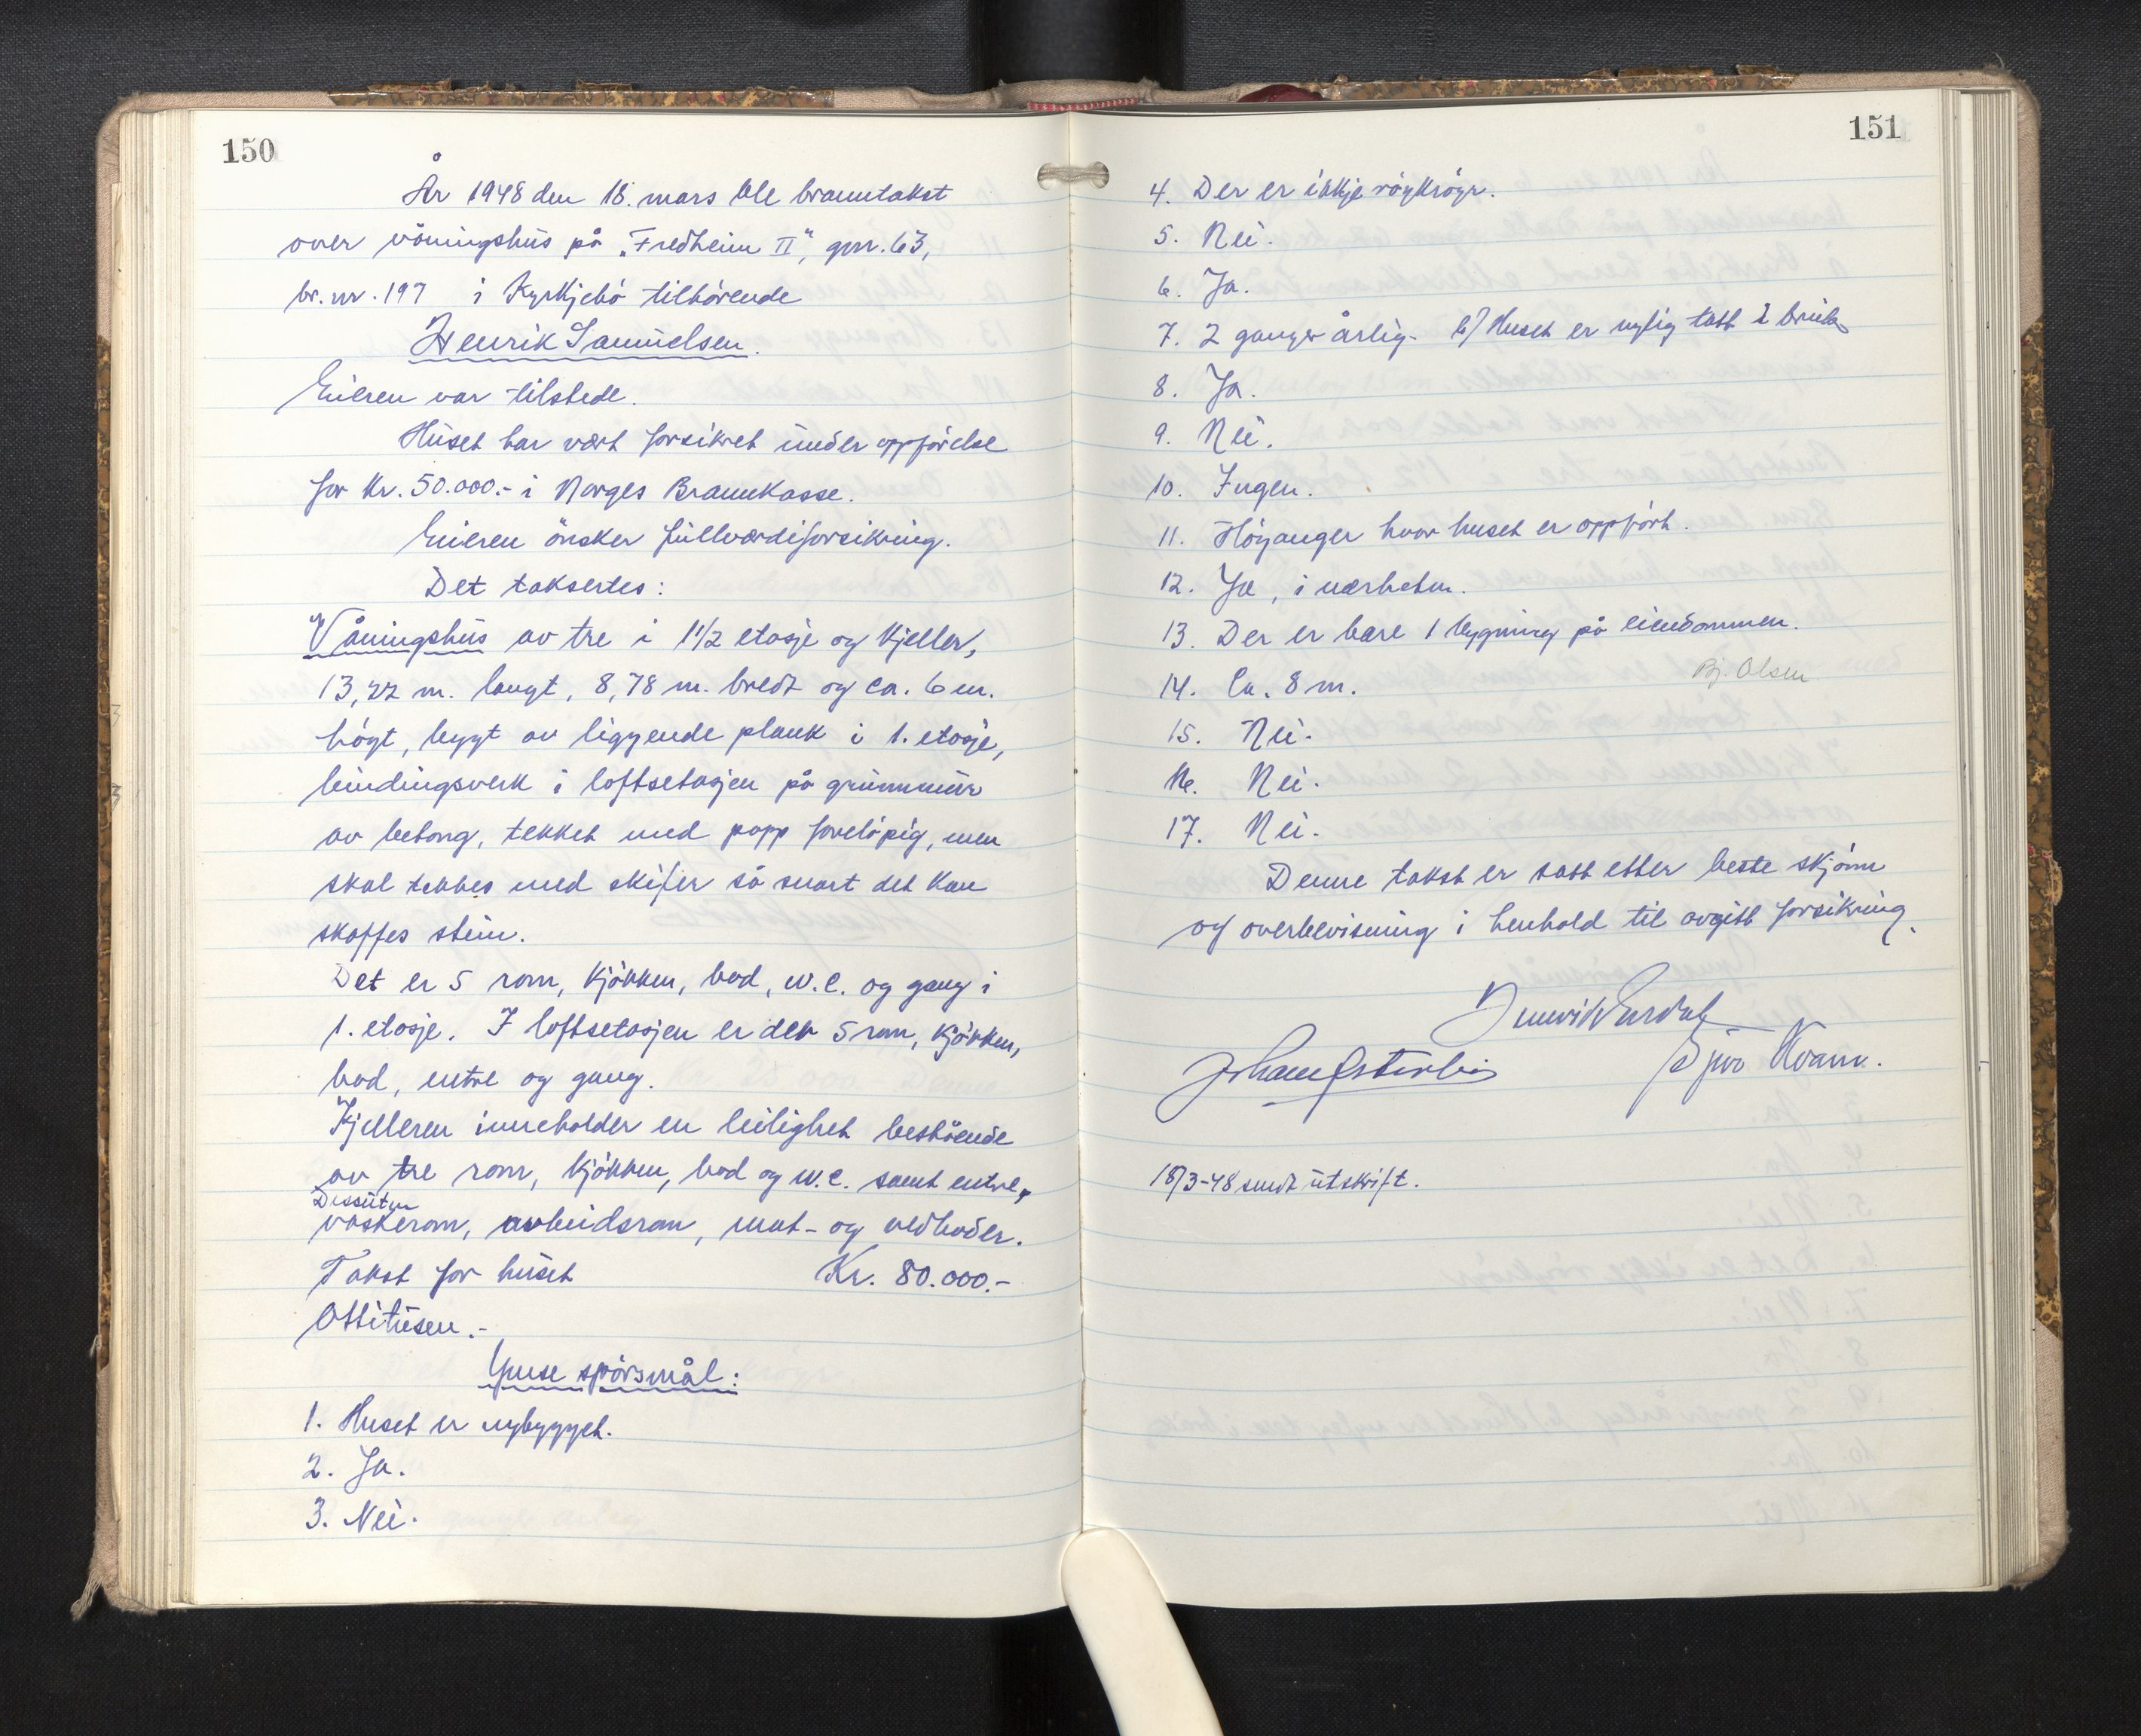 150
År 1948 den 18. mars ble branntakst
over våningshus på "Fredheim II", gnr. 63,
br.nr. 197 i Kyrkjebø tilhørende
Henrik Samuelsen.
Eieren var tilstede.
Huset har vært forsikret under oppførelse
for Kr. 50.000.- i Norges Brannkasse.
Eieren ønsker fullverdiforsikring.
Det taksertes:
Våningshus av tre i 1 1/2 etasje og kjeller,
13,22 m. langt, 8,78 m. bredt og ca. 6 m.
høgt, bygt av liggende plank i 1. etasje,
bindingsverk i loftsetasjen på grunnmur
av betong, tekket med papp foreløpig, men
skal tekkes med skifer så snart det kan
skaffes stein.
Det er 5 rom, kjøkken, bad, w.c. og gang i
1. etasje. I loftsetasjen er det 5 rom, kjøkken,
bad, entre og gang.
Kjelleren inneholder en leilighet bestående
av tre rom, kjøkken, bad og w.c. samt entre.
Dessuten
vaskerom, arbeidsrom, mat- og vedboder.
Takst for huset Kr. 80.000.-
Ottitusen.-
Ymse spørsmål:
1. Huset er nybygget.
2. Ja.
3. Nei.
151
4. Der er ikkje röykröyr.
5. Nei.
6. Ja.
7. 2 ganger årlig. b/ Huset er nylig tatt i bruk
8. Ja.
9. Nei.
10. Ingen.
11. Höyanger hvor huset er oppført.
12. Ja, i nærheten.
13. Der er bare 1 bygning på eiendommen.
Bj. Olsen
14. Ca. 8 m.
15. Nei.
16. Nei.
17. Nei.
Denne takst er satt etter beste skjønn
og overbevisning i henhold til avgitt forsikring.
Kvam.
18/3-48 sendt utskrift.